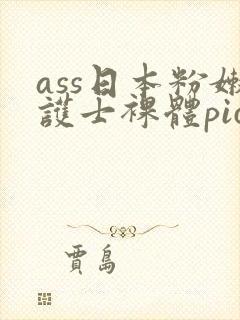 ass日本粉嫩
護士裸體pic
賈島